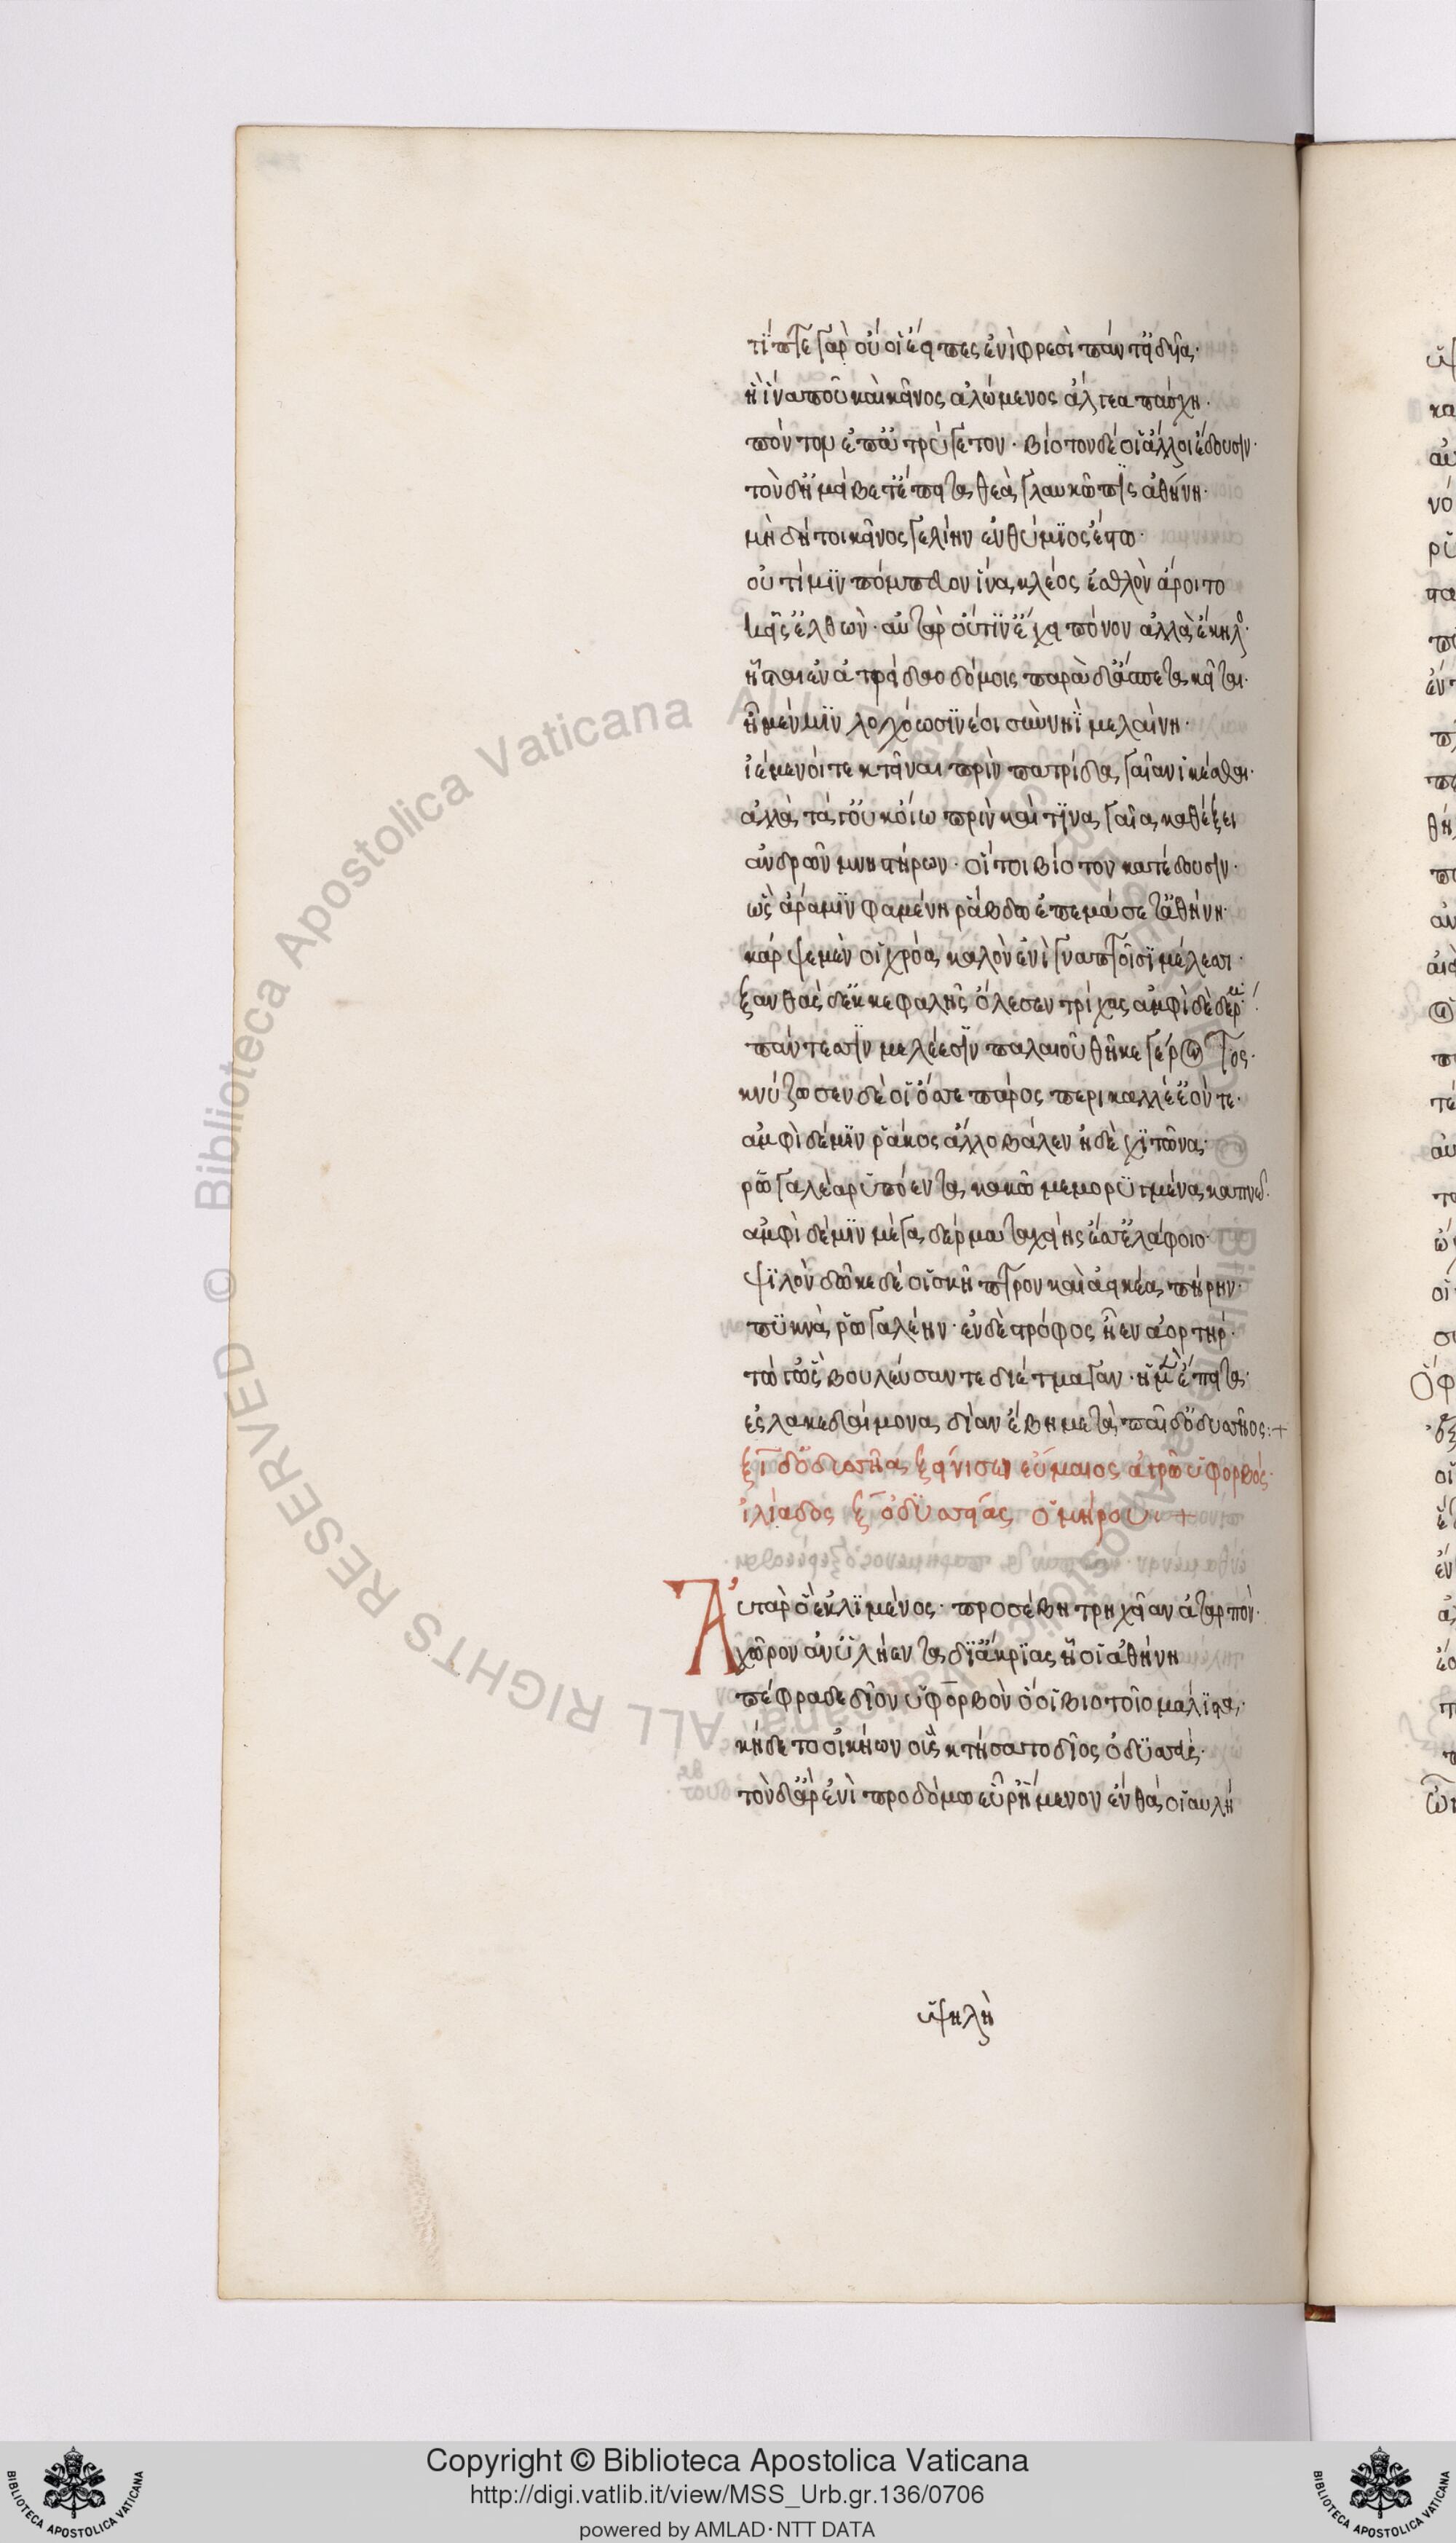 τίπτε γὰρ οὔ οἱ ἔειπες ἐνὶ φρεσὶ πάντ' εἰδυῖα·
ἢ ἵνα που καὶ κεῖνος ἀλώμενος ἄλγεα πάσχη·
πόντον ἐπ' ἀτρύγετον· βίοτον δέ οἱ ἄλλοι ἔδουσιν·
τὸν δ' ἠμείβετ' ἔπειτα θεὰ γλαυκῶπις ἀθήνη·
μὴ δή τοι κεῖνος γε λίην ἐνθύμιος ἔστω·
αὐτή μιν πόμπευον ἵνα κλέος ἐσθλὸν ἄροιτο
κεῖσ' ἐλθών· αὐτὰρ οὔτιν' ἔχει πόνον ἀλλὰ ἕκηλος
ἧσται ἐν ἀτρείδαο δόμοις παρὰ δ' ἄσπετα κεῖται·
ἦ μέν μιν λοχόωσι νέοι σὺν νηῒ μελαίνη·
ἱέμενοί τε κτεῖναι πρὶν πατρίδα γαῖαν ἱκέσθαι·
ἀλλὰ τάγ' οὐκ ὀΐω πρὶν καί τινα γαῖα καθέξει
ἀνδρῶν μνηστήρων· οἵ τοι βίοτον κατέδουσιν·
ὣς ἄρα μιν φαμένη ῥάβδω ἐπεμάσετ' ἀθήνη·
κάρψε μὲν οἱ χρόα καλὸν ἐνὶ γναπτοῖσι μέλεσσι·
ξανθὰς δ' ἐκ κεφαλῆς ὄλεσεν τρίχας ἀμφὶ δὲ δέρμα
πάντεσσιν μελέεσσιν παλαιοῦ θῆκε γέροντος·
κνύζωσεν δέ οἱ ὄσσε πάρος περικαλλέ' ἐόντε·
ἀμφὶ δέ μιν ῥάκος ἄλλο βάλεν ἠδὲ χιτῶνα·
ῥωγαλέα ῥυπόεντα κακῶ μεμορυγμένα καπνῶ·
ἀμφὶ δέ μιν μέγα δέρμα ταχείης ἕσσ' ἐλάφοιο·
ψιλὸν δῶκε δέ οἱ σκῆπτρον καὶ ἀεικέα πήρην·
πυκνὰ ῥωγαλέην· ἐν δὲ στρόφος ἦεν ἀορτήρ·
τώ γ' ὣς βουλεύσαντε διέτμαγεν· ἡ μὲν ἔπειτα
ἐς λακεδαίμονα δῖαν ἔβη μετὰ παῖδ' ὀδυσῆος:+
ξῖ δ' ὀδυσῆα ξείνισσεν εὔμαιος ἀγρῶ ὑφορβός·
ἰλιάδος ξ ὀδυσσείας ὁμήρου +
Αὐτὰρ ὁ ἐκ λιμένος· προσέβη τρηχεῖαν ἀταρπὸν·
χῶρον ἀν' ὑλήεντα δι' ἄκριας ἧ οἱ ἀθήνη
πέφραδε δῖον ὑφορβὸν ὅ οἱ βιότοιο μάλιστα·
κήδετο οἰκήων οὓς κτήσατο δῖος ὀδυσσεὺς·
τὸν δ' ἄρ' ἐνὶ προδόμω εὗρ' ἥμενον ἔνθα οἱ αὐλή
ὑψηλὴ
Copyright © Biblioteca Apostolica Vaticana
http://digi.vatlib.it/view/MSS_Urb.gr.136/0706
powered by AMLAD·NTT DATA